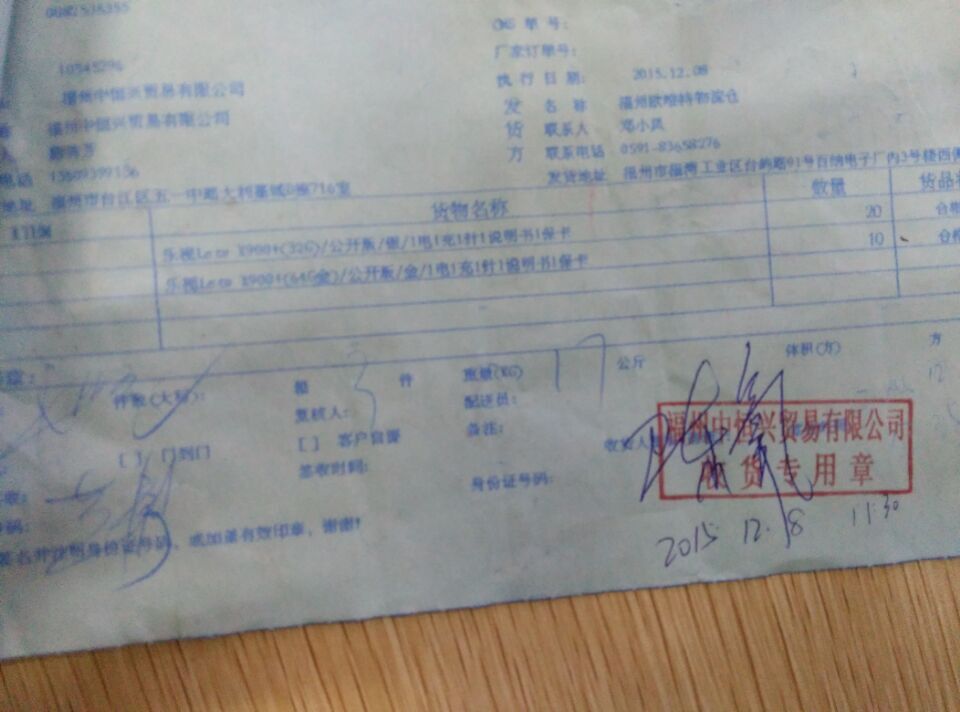 0082536355
CMS 单号:
厂家订单号:
10545296
执行日期: 2015.12.08
福州中恒兴贸易有限公司
发 名 称 福州欧唯特物流仓
福州中恒兴贸易有限公司
货 联系人 邓小凤
方 联系电话 0591-83658276
电话
发货地址 福州市福湾工业区台屿路91号百纳电子厂内3号楼西侧
地址 福州市台江区五一中路大利嘉城
716室
货物名称 数量 货品
乐视Letv X900+(32G)/公开版/银/1电1充1针1说明书1保卡 20 合格
乐视Letv X900+(64G金)/公开版/金/1电1充1针1说明书1保卡 10 合格
件数(大标): 箱 3 件 重量(KG) 17 公斤 体积(方) 方
复核人: 配送员:
[ ] 门到门 [ ] 客户自提 备注: 收货人
签收时间: 身份证号码:
福州中恒兴贸易有限公司
收货专用章
签名并注明身份证号码, 或加盖有效印章, 谢谢!
2015 12.8 11:30